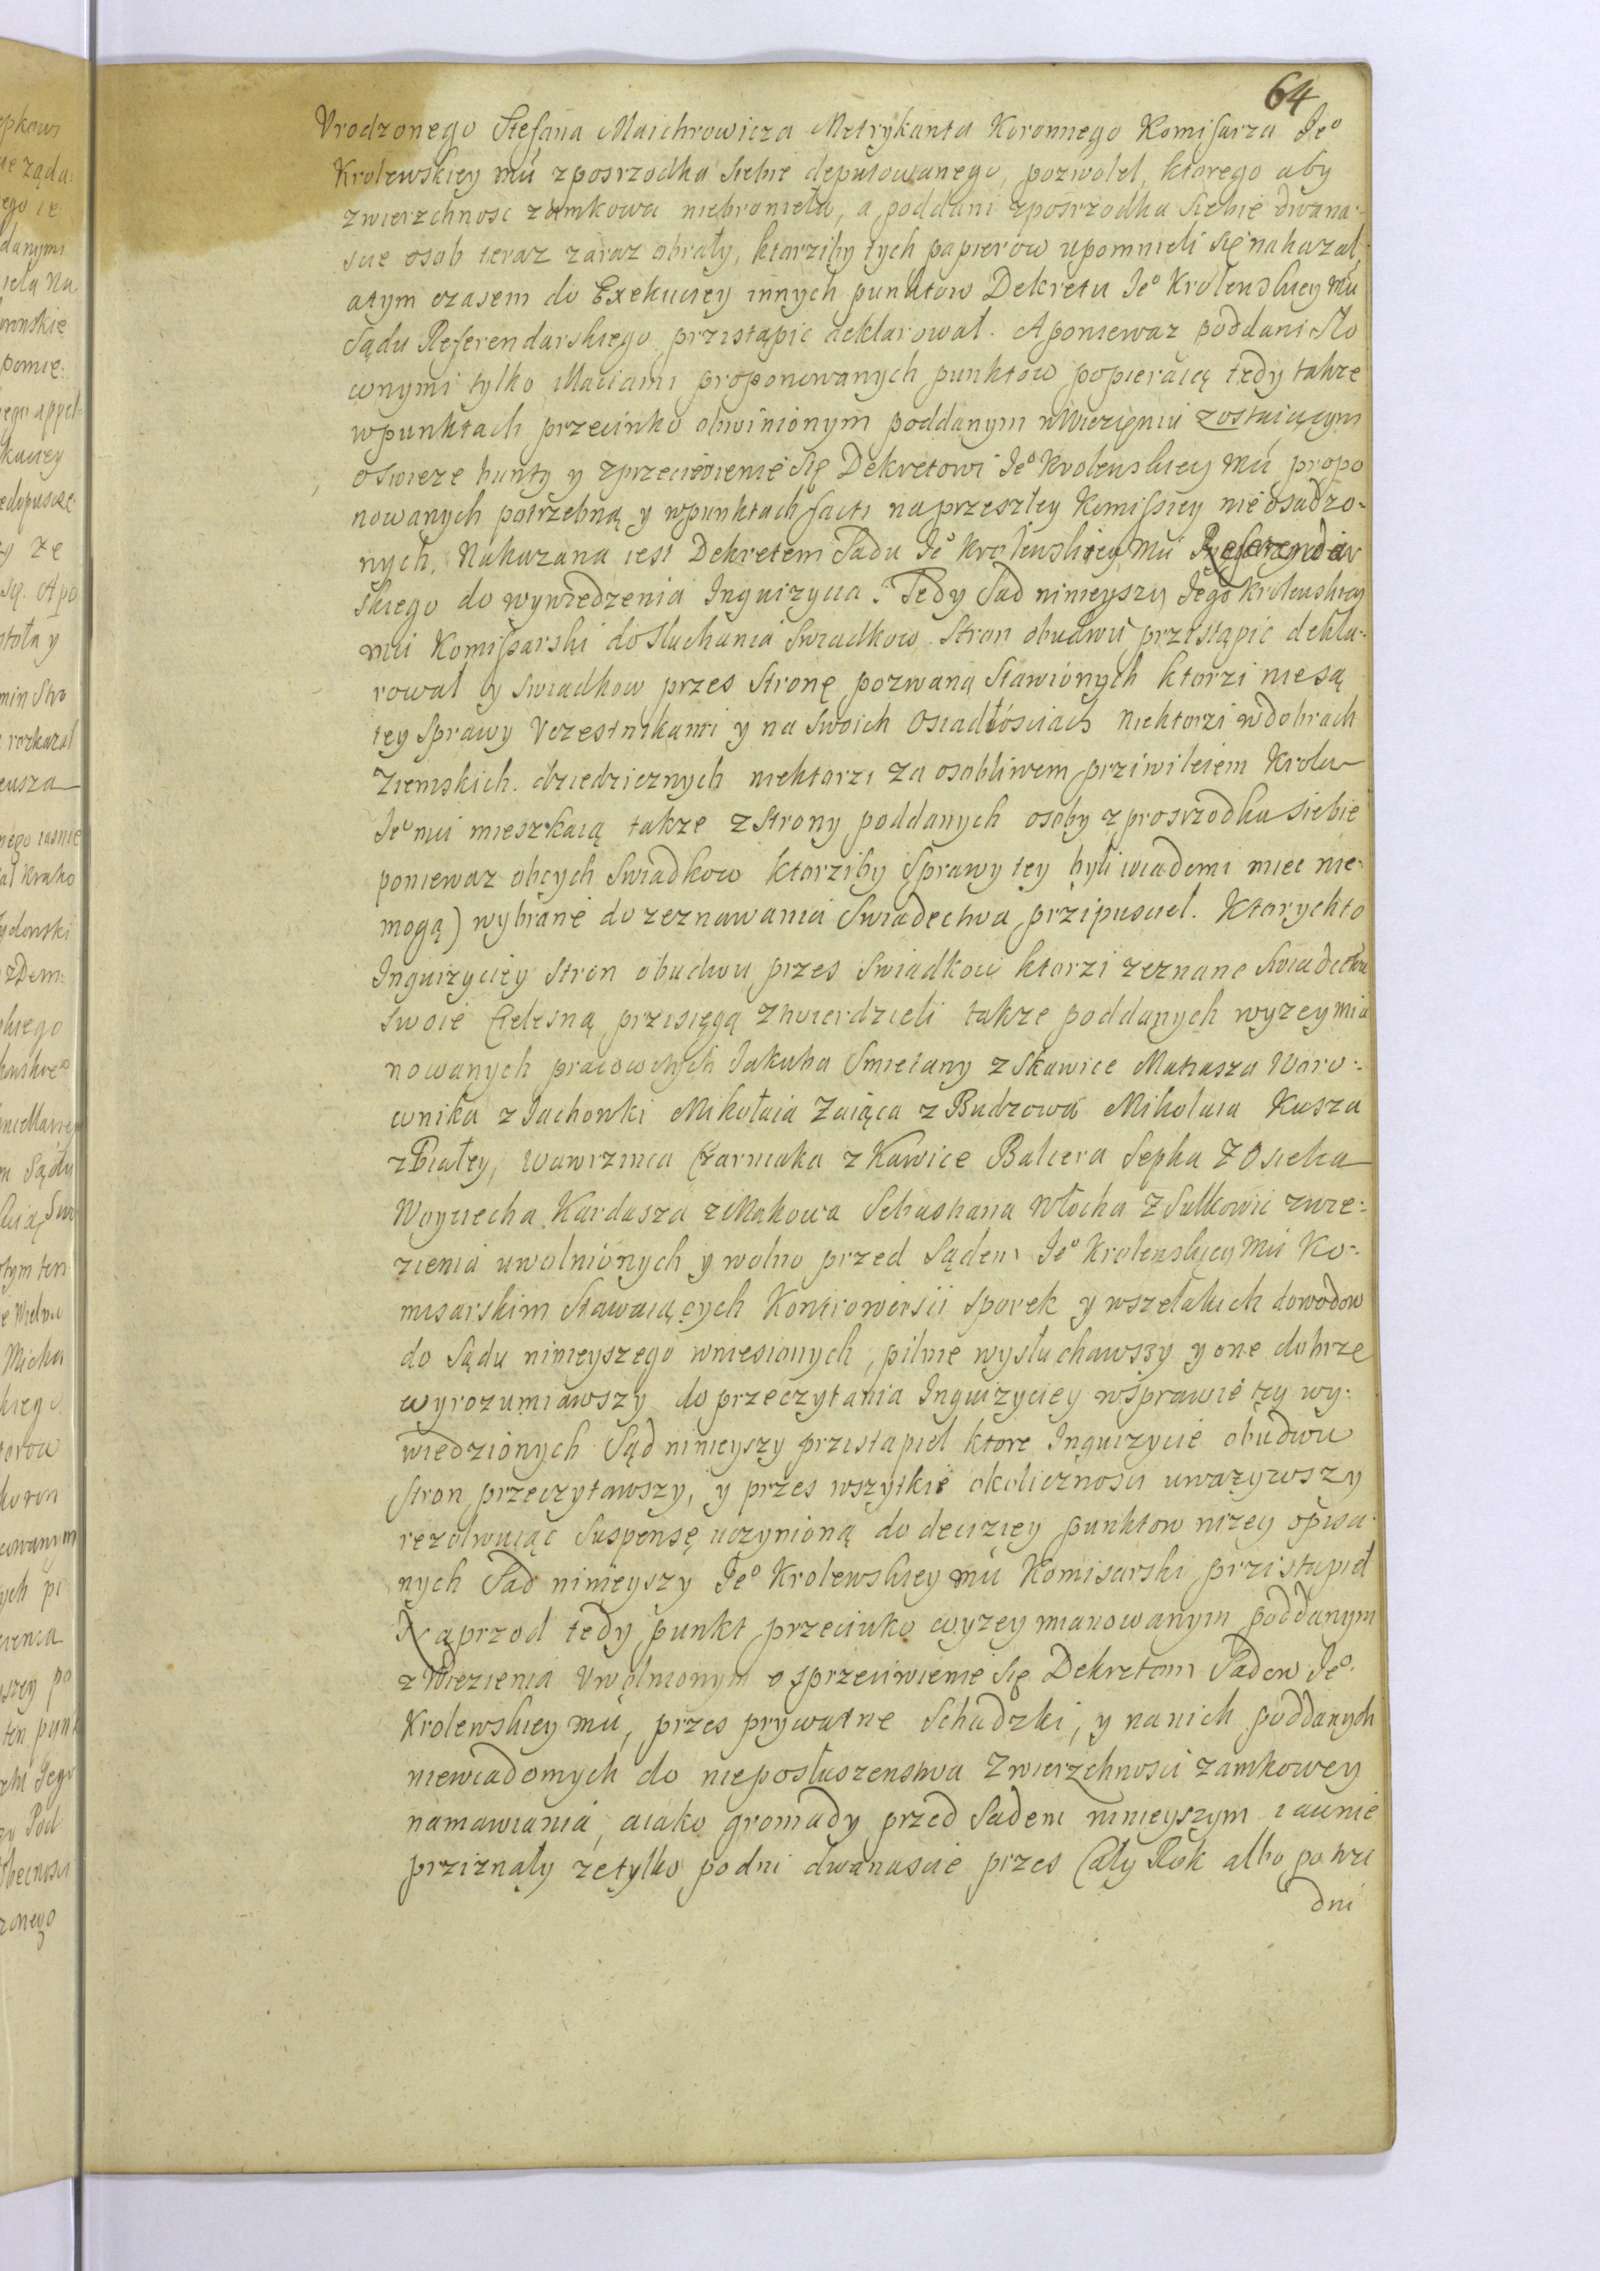 64
Vrodzonego Stefana Maichrowicza Metrykanta Koronnego Komisarza Je°
Krolewskiey mći zposrzodka siebie deputowanego, pozwolel, ktorego aby
zwierzchnosc zamkowa niebronieła, a poddani zposrzodka siebie dwana-
scie osob teraz zaraz obrały, ktorziby tych papierow upomnieli się nakazał,
atym czasem do Exekucyey innych punktow Dekretu Je° Krolewskiey Mći
Sądu Referendarskiego przistąpic deklarował. A poniewaz poddani Sło
wnymi tylko proponowanych punktow popieraią tedy takze
wpunktach przeciwko obwinionym poddanym wWięzieniu zostaiącym
o swieze bunty y zprzeciwienie się Dekretowi Je° Krolewskiey Mći propo
nowanych potrzebną y wpunktach facti naprzeszłey Komissiey nie osadzo-
nych, Nakazana iest Dekretem Sadu Je° Krolewskiey Mći Referendar
skiego do wywiedzenia Inquizycia: Tedy Sad ninieyszy Jego Krolewskiey
mći Komissarski do słuchania Swiadkow Stron obudwu przistąpic dekla-
rował y swiadkow przes Stronę pozwaną Stawionych ktorzi niesą
tey Sprawy Vczestnikami y na swoich Osiadłościach niektorzi wdobrach
Ziemskich dziedzicznych niektorzi za osobliwem prziwileiem Krola
Je° mći mieszkaią takze z Strony poddanych osoby zprosrzodka siebie
poniewaz obcych Swiadkow ktorziby Sprawy tey byli wiadomi miec nie-
mogą) wybrane do zeznawania Swiadectwa przipusciel. Ktorychto
Inquizyciey Stron obudwu przes Swiadkow ktorzi zeznane Swiadectwa
swoie Cielesną przisięgą ztwierdzieli takze poddanych wyzeymia
nowanych pracowitych Jakuba Smietany z Skawice Matiasza Waro-
wnika z Jachowki Mikołaia Zaiąca z Budzowa Mikołaia Kusza
z Białey, Wawrzinca Czarniaka z Kawice Balcera Sepka Z Osielca
Woyciecha Kardasza z Makowa Sebastiana Włocha Z Sulkowic zwię-
zienia uwolnionych y wolno przed Sądem Je° Krolewskiey Mći Ko-
misarskim Stawaiących Kontrowersii sporek y wszelakich dowodow
do Sądu ninieyszego wniesionych, pilnie wysłuchawszy y one dobrze
wyrozumiawszy do przeczytania Inquizyciey wsprawie tey wy-
wiedzionych Sąd ninieyszy przistąpiel ktore Inquizycie obudwu
Stron przeczytawszy, y przes wszytkie okolicznosci uwazywszy
rezolwuiąc Suspensę uczynioną do deciziey punktow nizey opisa-
nych Sad ninieyszy Je° Krolewskiey mći Komisarski przistąpieł
Naprzod tedy punkt przeciwko wyzey mianowanym poddanym
z Wiezienia Vwolnionym o sprzeciwienie się Dekretom Sadow Je°
Krolewskiey mći, przes prywatne Schadzki, y nanich poddanych
niewiadomych do nieposłuszenstwa Zwierzchnosci zamkowey
namawiania, aiako gromady przed Sadem ninieyszym iawnie
prziznały zetylko podni dwanascie przes Cały Rok albo po trzi
dni